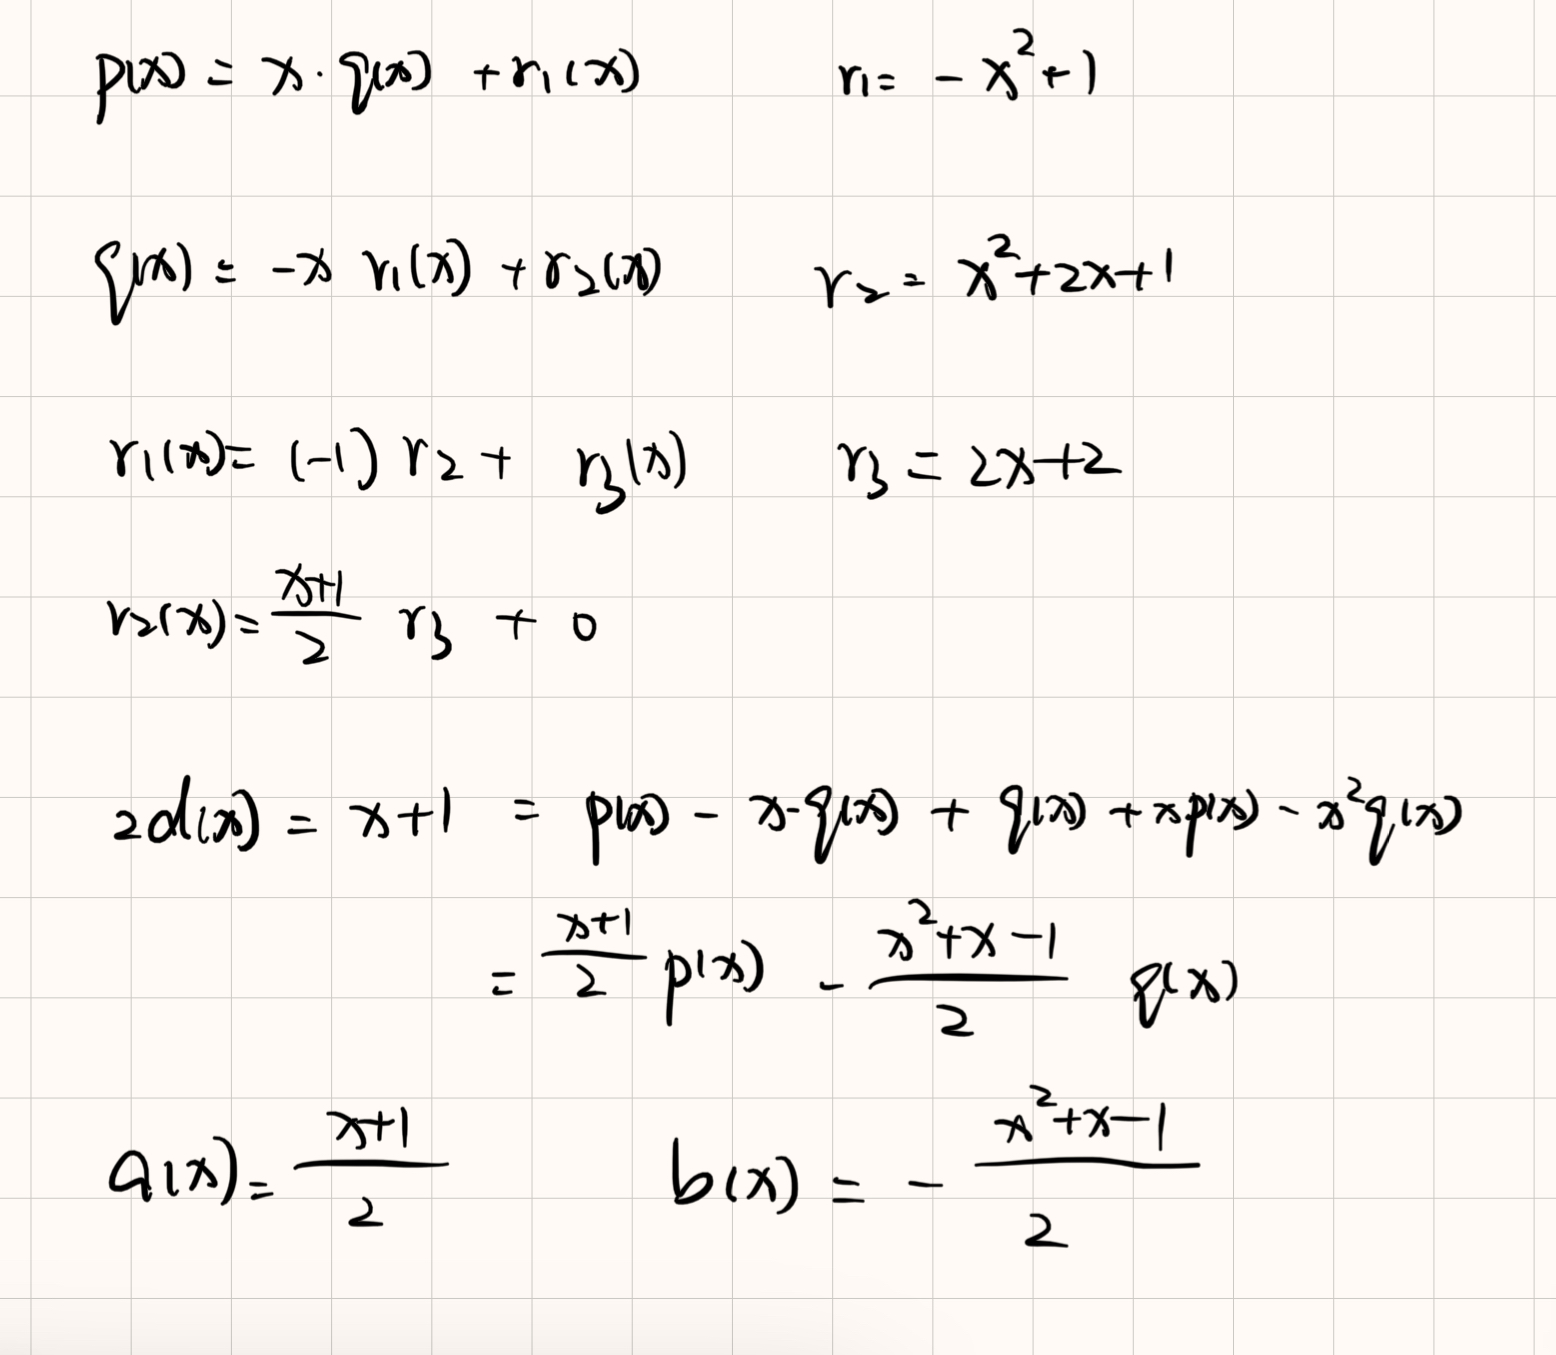 p(x) = x · q(x) + r₁(x)    r₁ = - x² + 1
q(x) = -x r₁(x) + r₂(x)    r₂ = x² + 2x + 1
r₁(x) = (-1) r₂ + r₃(x)    r₃ = 2x + 2
r₂(x) = (x+1)/2 r₃ + 0
2d(x) = x+1 = p(x) - x·q(x) + q(x) + xp(x) - x²q(x)
= (x+1)/2 p(x) - (x²+x-1)/2 q(x)
a(x) = (x+1)/2    b(x) = - (x²+x-1)/2